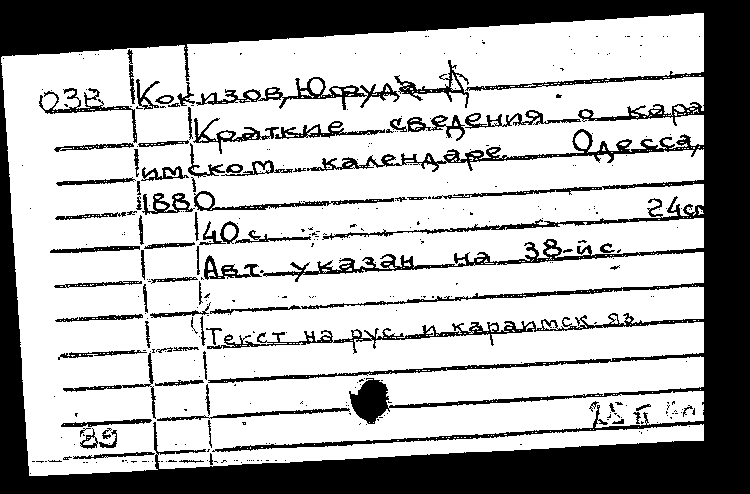 ОЗВ Кокизов, Юфуда А
Краткие сведения о кара
имском календаре Одесса,
1880
40 с. 24см
Авт. указан на 38-й с.
Текст на рус. и караимск. яз.
89 25 II